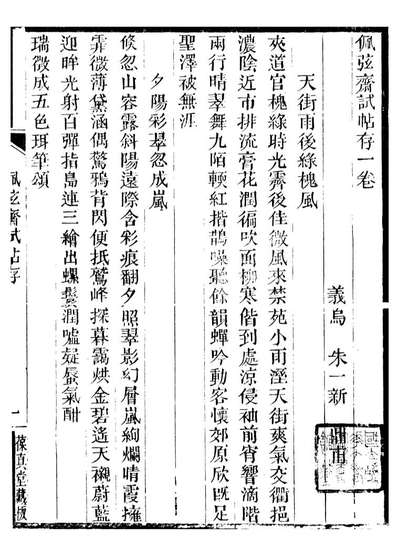 佩弦齋試帖存一卷
義烏 朱一新
天街雨後綠槐風
夾道官槐綠時光霽後佳微風來禁苑小雨溼天街爽氣交衢挹
濃陰近市排流膏花潤徧吹面柳寒偕到處涼侵袖前宵響滴階
兩行晴翠舞九陌輭紅揩鵲噪聽餘韻蟬吟動客懷郊原欣旣足
聖澤被無涯
夕陽彩翠忽成嵐
倏忽山容露斜陽遠際含彩痕翻夕照翠影幻層嵐絢爛晴霞擁
霏微薄黛涵偶驚鴉背閃便抵鷲峰探暮靄烘金碧遙天襯蔚藍
迎眸光射百彈指島連三繪出螺鬟潤噓疑蜃氣酣
瑞徵成五色珥筆頌
佩弦齋試帖存 一 葆真堂藏板